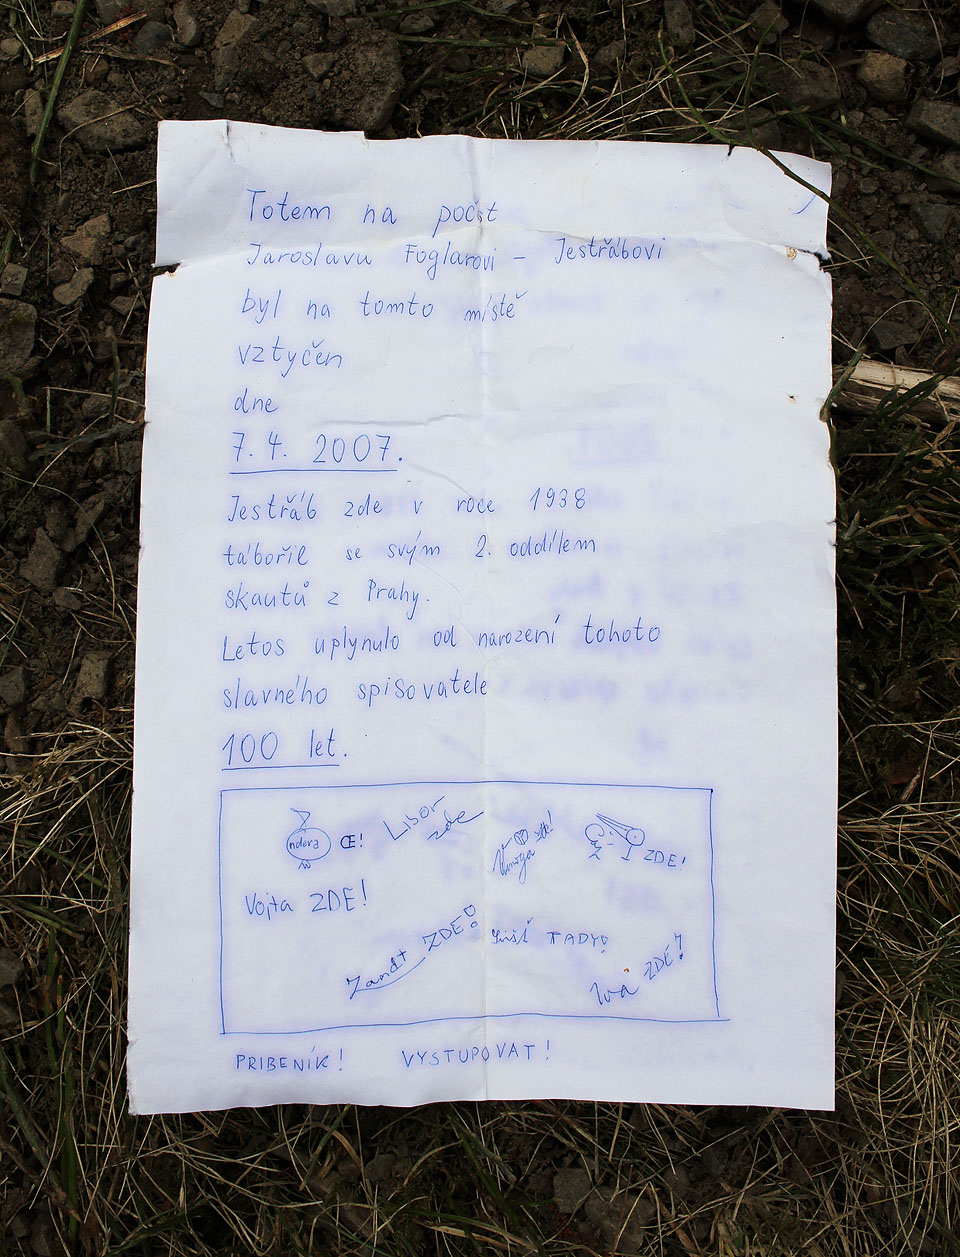 Totem na počst
Jaroslavu Foglarovi - Jestřábovi
byl na tomto místě
vztyčen
dne
7. 4. 2007.
Jestřáb zde v roce 1938
tábořil se svým 2. oddílem
skautů z Prahy.
Letos uplynulo od narození tohoto
slavného spisovatele
100 let.
ndera Œ!
Libor zde
zde!
ZDE!
Vojta ZDE!
Zandt ZDE!
TADY!
Iva ZDE!
PRIBENÍK! VYSTUPOVAT!